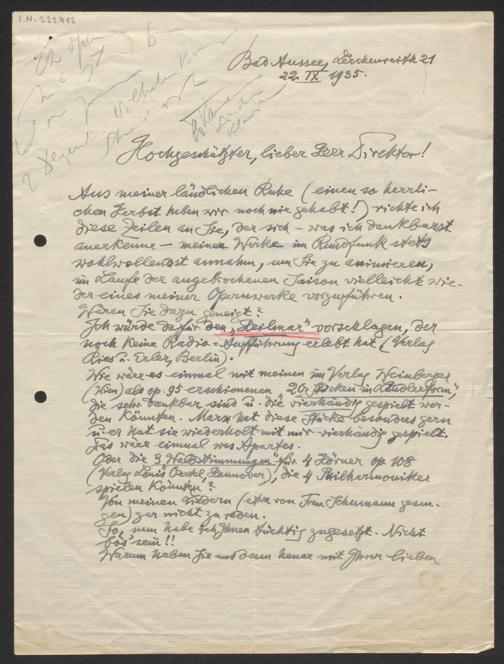 I.N. 222.412
Bad Aussee, Lerchenreith 21
22. IX 1935.
Hochgeschätzter, lieber Herr Direktor!
Aus meiner ländlichen Ruhe (einen so herrli-
chen Herbst haben wir noch nie gehabt!) richte ich
diese Zeilen an Sie, der sich – was ich dankbarst
anerkenne – meiner Werke im Rundfunk stets
wohlwollendst annahm, um Sie zu animieren,
im Laufe der angebrochenen Saison vielleicht wie-
der eines meiner Opernwerke vorzuführen.
Wären Sie dazu geneigt?
Ich würde dafür den „Heilmar" vorschlagen, der
noch keine Radio-Aufführung erlebt hat (Verlag
Ries u. Erler, Berlin).
Wie wäre es einmal mit meinen im Verlag Weinberger
(Wien) als op. 95 erschienenen, 20 Stücken in Ländlerform,
die sehr dankbar sind u. die vierhändig gespielt wer-
den könnten. Marx hat diese Stücke besonders gern
u. er hat sie wiederholt mit mir vierhändig gespielt.
Das wäre einmal was Apartes.
Oder die 3 „Waldstimmungen" für 4 Hörner op. 108
(Verlag Louis Oertel, Hannover), die 4 Philharmoniker
spielen könnten?
Von meinen Liedern (etwa von Frau Schumann gesun-
gen) gar nicht zu reden.
So, nun habe ich Ihnen tüchtig zugesetzt. Nicht
bös sein!!
Warum haben Sie uns denn heuer mit Ihrer lieben